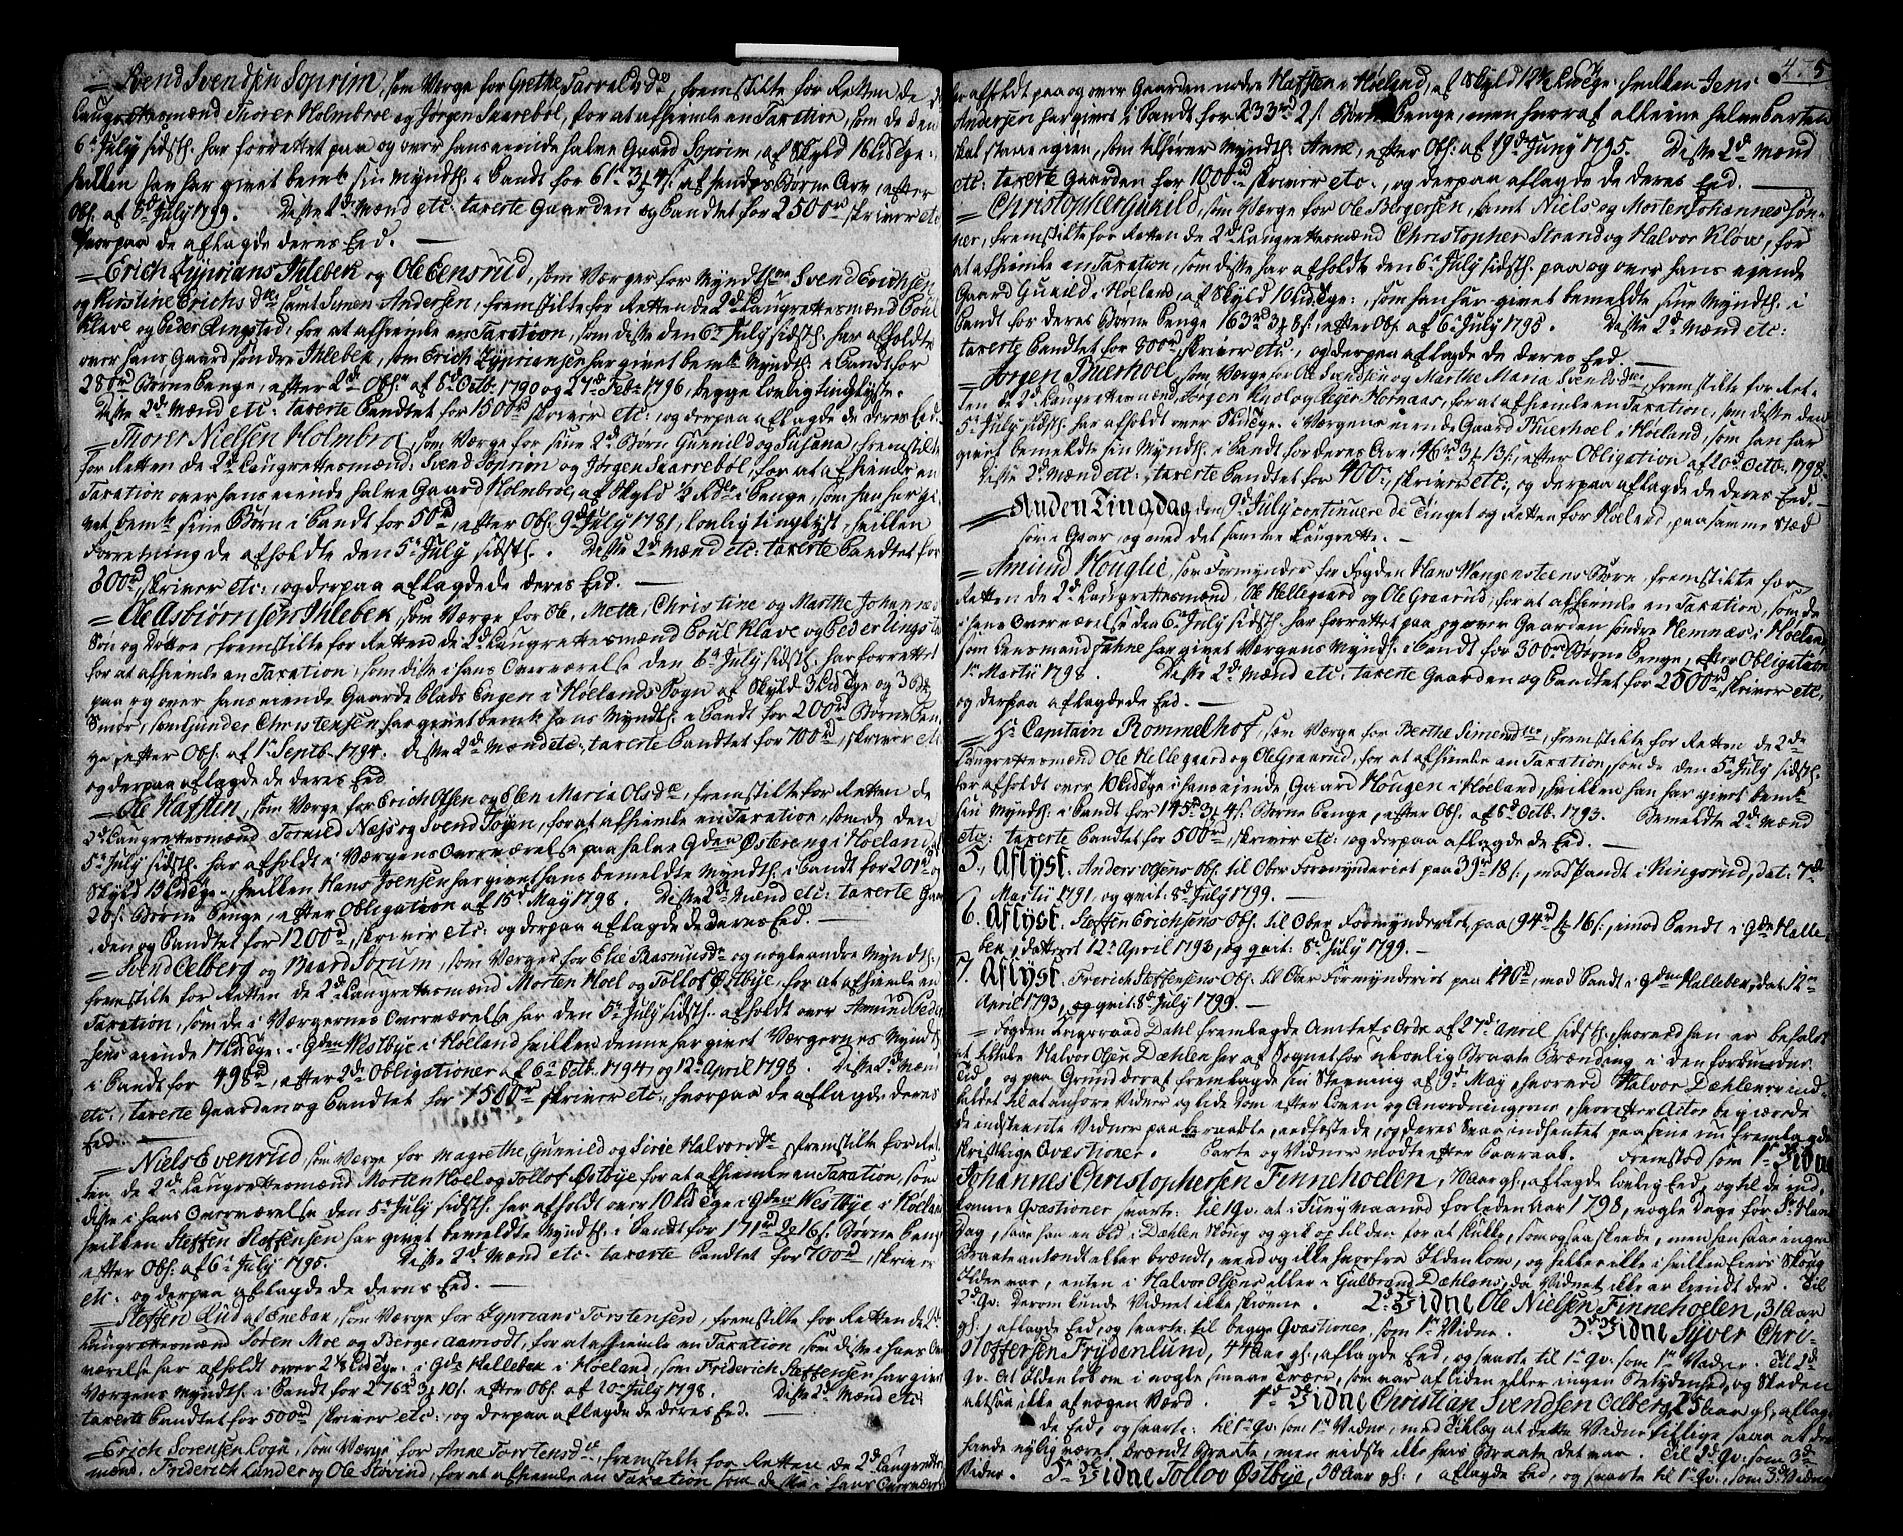 = Svend Svendsen Soprim, som Værge for Grethe Tarvalds dr, fremstilte for Retten de
Laugrettesmænd Thorer Holmbroe og Jørgen Saarebøl, for at afhiemle en Taxation, som de den
6te July sidstl. har forrettet paa og over hans eiende halve Gaard Soprim, af Skyld
hvilken han har givet bemte sin Myndtl. i Pandt for 61 rd 3 4 s. af hendes Børne Arv, efter
Obl. af 8de July 1799. Disse 2de Mænd etc: taxerte Gaarden og Pandtet for 2500 rd skriver etc
hvorpaa de aflagde deres Eed. —
= Erich Zyprians Ihlebek og Ole Eensrud, som Værger for Myndtl. Svend Erichsen
og Kirstine Erichs dtr samt Simen Andersen, fremstilte for Retten de 2de Laugrettesmænd Poul
Klave og Peder Ringstad: for at afhiemle en Taxation, som disse den 6te July sidstl: har afholdte
over hans Gaard søndre Ihlebek, som Erich Zypriansen har givet bemte Myndtl. i Pandt for
288 rd Børne Penge, efter 2de Obl. af 8de Octb. 1790 og 27de Feb. 1796, begge lovlig tinglyste.
Disse 2de Mænd etc: taxerte Pandtet for 1500 rd skriver etc: og derpaa aflagde de deres Eed.
= Thorer Nielsen Holmbroe, som Værge for sine 2de Børn Gunnild og Susana, fremstilte
for Retten de 2de Laugrettesmænd: Svend Soprim og Jørgen Saarrebøl, for at afhiemle en
Taxation over hans eiende halve Gaard Holmbroe, af Skyld Penge, som han har gi-
vet bemte sine Børn i Pandt for 50 rd, efter Obl. 9de July 1781, lovlig tinglyst, hvilken
Forretning de afholdte den 5te July sidstl. . Disse 2de Mænd etc: taxerte Pandtet for
800 rd, skriver etc: og derpaa aflagde de deres Eed. —
= Ole Asbiørnsen Ihlebek, som Værge for Ole, Mette, Christine og Marthe Johannes
Søn og Døttre, fremstilte for Retten de 2de Laugrettesmænd Poul Klave og Peder Ringstad
for at afhiemle en Taxation, som disse i hans Overværelse den 6te July sidstl. har forrettet
paa og over hans eiende Gaarde Plads Engen i Høelands Sogn af Skyld 3 og 3
Smør, som Gunder Christensen har givet bemte hans Myndtl. i Pandt for 200 rd Børne Pen-
ge, efter Obl. af 1te Septb. 1794. Disse 2de Mænd etc: taxerte Pandtet for 700 rd, skriver etc
og derpaa aflagde de deres Eed.
= Ole Hafsten, som Værge for Erich Olsen og Elen Maria Ols dtr, fremstilte for Retten de
2de Laugrettesmænd Tormud Næss og Svend Toyen, for at afhiemle en Taxation, som de den
5te July sidstl. har afholdt i Værgens Overværelse paa halve Gden Østereng i Høeland, af
Skyld hvilken Hans Joensen har givet hans bemeldte Myndtl: i Pandt for 201 rd og
20 s. Børne Penge, efter Obligation af 15de May 1798. Disse 2de Mænd etc: taxerte Gaar-
den og Pandtet for 1200 rd, skriver etc: og derpaa aflagde de deres Eed. —
= Svend Oelberg og Baard Sorum, som Værger for Elie Rasmusdr og nogle andre Myndtl.,
fremstilte for Retten de 2de Laugrettesmænd Morten Hoel og Tollof Østbye, for at afhiemle en
Taxation, som de i Værgernes Overværelse har den 5te July sidstl. afholdt over Amund Peder-
sens eiende i Gden Westbye i Høeland hvilken denne har givet Værgernes Myndtl.
i Pandt for 498 rd, efter 2de Obligationer af 6te Octb. 1794, og 12te April 1798. Disse 2de Mænd
etc: taxerte Gaarden og Pandtet for 1500 rd skriver etc: hvorpaa de aflagde deres
Eed. —
= Niels Evenrud, som Værge for Magrethe, Gunnild og Sirie Halvors dr, fremstilte for Ret-
ten de 2de Laugrettesmænd Morten Hoel og Tollof Østbye for at afhiemle en Taxation, som
disse i hans Overværelse den 5te July sidstl. har afholdt over i Gden Westbye i Høeland
hvilken Steffen Steffensen har givet bemeldte Myndtl. i Pandt for 171 rd 16 s. Børne Penge
efter Obl. af 6te July 1795. Disse 2de Mænd etc: taxerte Pandtet for 700 rd, skriver
etc: og derpaa aflagde de deres Eed. —
= Steffen Rud af Enebak, som Værge for Zyprians Torstensen, fremstilte for Retten de 2de
Laugrettesmænd Soren Moe og Berger Aamodt, for at afhiemle en Taxation, som disse i hans Over-
værelse har afholdt over i Gden Hallebek i Høeland, som Friderich Steffensen har givet
Værgens Myndtl. i Pandt for 276 rd 3 10 s. efter Obl. af 20de July 1798. Disse 2de Mænd etc:
taxerte Pandtet for 500 rd skriver etc: og derpaa aflagde de deres Eed. —
= Erich Sorensen Kogn, som Værge for Anne Torstens dtr, fremstilte for Retten de 2de Laugrettes-
mænd, Friderich Lunder og Ole Stovind, for at afhiemle en Taxation som disse i hans Overværelse
475
har afholdt paa og over Gaarden nedre Hafsten i Høeland, af Skyld hvilken Jens
Andersen har givet i Pandt for 233 rd 2 s. Børne Penge, men hvoraf alleine halve Parten
skal staae igien, som tilhører Myndtl. Anne, efter Obl. af 19de Juny 1795. Disse 2de Mænd
etc: taxerte Gaarden for 1000 rd skriver etc:, og derpaa aflagde de deres Eed. —
= Christopher Gukild, som Værge for Ole Børgersen, samt Niels og Morten Johannes Søn-
ner, fremstilte for Retten de 2de Laugrettesmænd Christopher Strand og Halvor Kløw, for
at afhiemle en Taxation, som disse har afholdt den 6te July sidstl. paa og over hans eiende
Gaard Gukild i Høeland, af Skyld som han har givet bemeldte sine Myndtl. i
Pandt for deres Børne Penge 163 rd 3 8 s, efter Obl. af 6te July 1795. Disse 2de Mænd etc:
taxerte Pandtet for 800 rd, skriver etc:, og derpaa aflagde de deres Eed. —
= Jørgen Buerhoel, som Værge for Ole Svendsen og Marthe Maria Svends dtr, fremstilte for Ret-
ten de 2de Laugrettesmænd, Jørgen Knol og Asger Hornaas, for at afhiemle en Taxation, som disse den
5te July sidstl. har afholdt over i Værgens eiende Gaard Buerhoel i Høeland, som han har
givet bemeldte sin Myndtl. i Pandt for deres Arv, 46 rd 3 13 s., efter Obligation af 10de Octb. 1798.
Disse 2de Mænd etc: taxerte Pandtet for 400, skriver etc:, og derpaa aflagde de deres Eed. —
= Anden Tingdag den 9de July continuerede Tinget og Retten for Høeland, paa samme Stæd
som i Gaar, og med det samme Laugrette. —
= Amund Houglie, som Formynder for Fogden Hans Wangensteens Børn, fremstilte for
Retten de 2de Laugrettesmænd, Ole Hellegaard og Ole Graarud, for at afhiemle en Taxation, som de
i hans Overværelse den 6te July sidstl. har forrettet paa og over Gaarden søndre Hemnæs i Høeland,
som Lensmand Fahne har givet Værgens Myndtl. i Pandt for 300 rd Børne Penge, efter Obligation
1te Martii 1798. Disse 2de Mænd etc: taxerte Gaarden og Pandtet for 2500 rd, skriver etc,
og derpaa aflagde de Eed. —
= Hr Capitain Rommelhof, som Værge for Berthe Simens dtr, fremstilte for Retten de 2de
Laugrettesmænd Ole Hellegaard og Ole Graarud, for at afhiemle en Taxation, som de den 5te July sidstl.
har afholdt over i hans eiende Gaard Hougen i Høeland, hvilken han har givet bemte
sin Myndtl: i Pandt for 145 rd 3 4 s. Børne Penge, efter Obl. af 8de Octb. 1793. Bemeldte 2de Mænd
etc: taxerte Pandtet for 500 rd, skriver etc: og derpaa aflagde de Eed. —
5. Aflyst. Anders Olsens Obl. til Ober Formynderiet paa 39 rd 18 s., mod Pandt i Ringsrud, dat: 7de
Martii 1791, og qvit: 8de July 1799. —
6. Aflyst. Steffen Erichsens Obl. til Ober Formynderiet, paa 94 rd 16 s., imod Pandt i Gden Halle-
bek, dateret 12te April 1793, og qvit: 8de July 1799. —
7. Aflyst. Frerich Steffensens Obl. til Ober Formynderiet paa 140 rd, mod Pandt i Gden Hallebek, dat 12te
April 1793, og qvit: 8de July 1799. —
= Fogden Krigsraad Dahl fremlagde Amtets Ordre af 27de April sidstl. hvorved han er befalet
at tiltale Halvor Olsen Dæhlen her af Sognet for ulovlig Braate Brænding i den forbudne
Tid, og paa Grund deraf fremlagde sin Stevning af 9de May, hvorved Halvor Dæhlen er ind-
kaldet til at anhøre Vidner og lide Dom efter Loven og Anordningerne, hvorefter Actor begiærede
de indstevnte Vidner paaraabte, eedfæstede, og deres Svar indhentet paa sine nu fremlagde
skriftlige Qvæstioner. Parte og Vidner mødte efter Paaraab. Fremstod som 1te Vidne
Johannes Christophersen Finnehoelen, aar gl., aflagde lovlig Eed, og til de ind-
komne Qvæstioner svarte: til 1 Qv. at i Juny Maaned forleden Aar 1798, nogle Dage før St. Hans
Dag, saae han en Ild i Dæhlen Skoug og gik op til den for at slukke, som ogsaa skeede, men han saae ingen
Braate antændt eller brændt, veed og ikke hvorfra Ilden kom, og heller ikke i hvilken Eiers Skoug
Ilden var, enten i Halvor Olsens eller i Gulbrand Dæhlens, da Vidnet ikke er kiendt der. Til
2de Qv: Derom kunde Vidnet ikke skiønne. 2de Vidne Ole Nielsen Finnehoelen, 31 Aar
gl., aflagde Eed, og svarte til begge Qvæstioner som 1te Vidne. 3de Vidne Syver Chri-
stoffersen Frydenlund, 44 Aar gl., aflagde Eed, og svarte til 1te Qv: som 1te Vidne. Til 2de
Qv. At Ilden løb om i nogle smaae Træer, som var af liden eller ingen Betydenhed, og Skaden
altsaa ikke af nogen Værd. 4de Vidne Christian Svendsen Oelberg, 25 Aar gl., aflag-
de Eed, og svarte: til 1te Qv. som 1te Vidne, med Tillæg at dette Vidne tillige saae at der
havde nylig været brændt Braate, men vidste ikke hvis Braate det var. Til 2de Qv: som 3de
Vidne. 5te Vidne Tollov Østbye, 38 Aar gl., aflagde Eed, og svarte til 1te Qv., som 3de Vidne